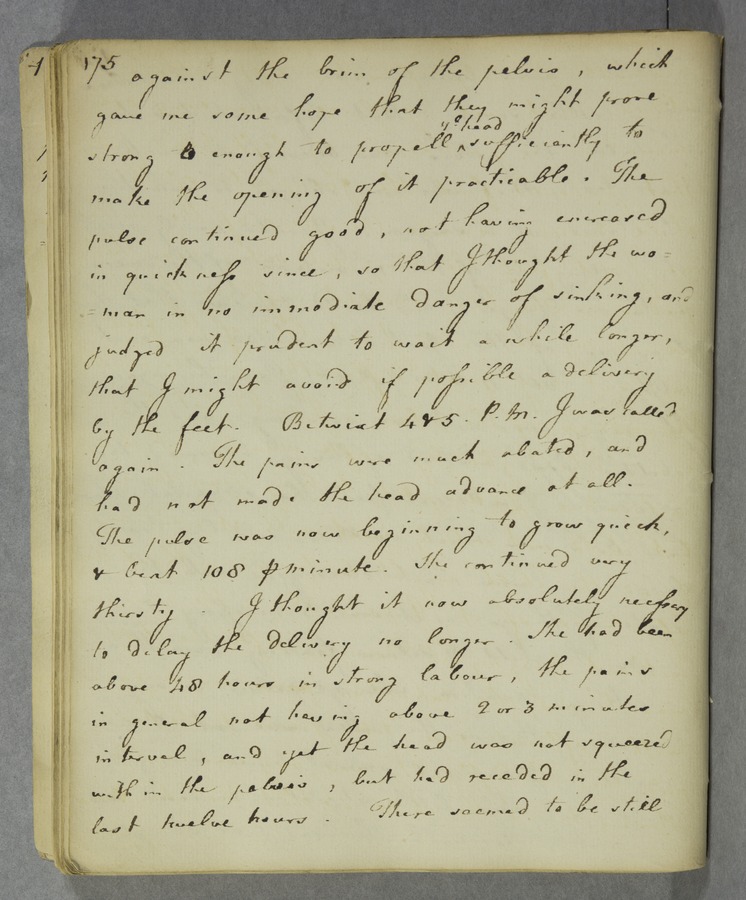 175 against the brim of the pelvis, which
gave me some hope that they might prove
strong enough to propell ye head sufficiently to
make the opening of it practicable. The
pulse continued good, not having encreased
in quickness since, so that I thought the wo=
=man in no immediate danger of sinking, and
judged it prudent to wait a while longer,
that I might avoid if possible a delivery
by the feet. Betwixt 4 & 5. P.M. I was called
again. The pains were much abated, and
had not made the head advance at all.
The pulse was now beginning to grow quick,
& beat 108 ℘ minute. She continued very
thirsty. I thought it now absolutely necessary
to delay the delivery no longer. She had been
above 48 hours in strong labour, the pains
in general not having above 2 or 3 minutes
interval, and yet the head was not squeezed
within the pelvis, but had receded in the
last twelve hours. There seemed to be still